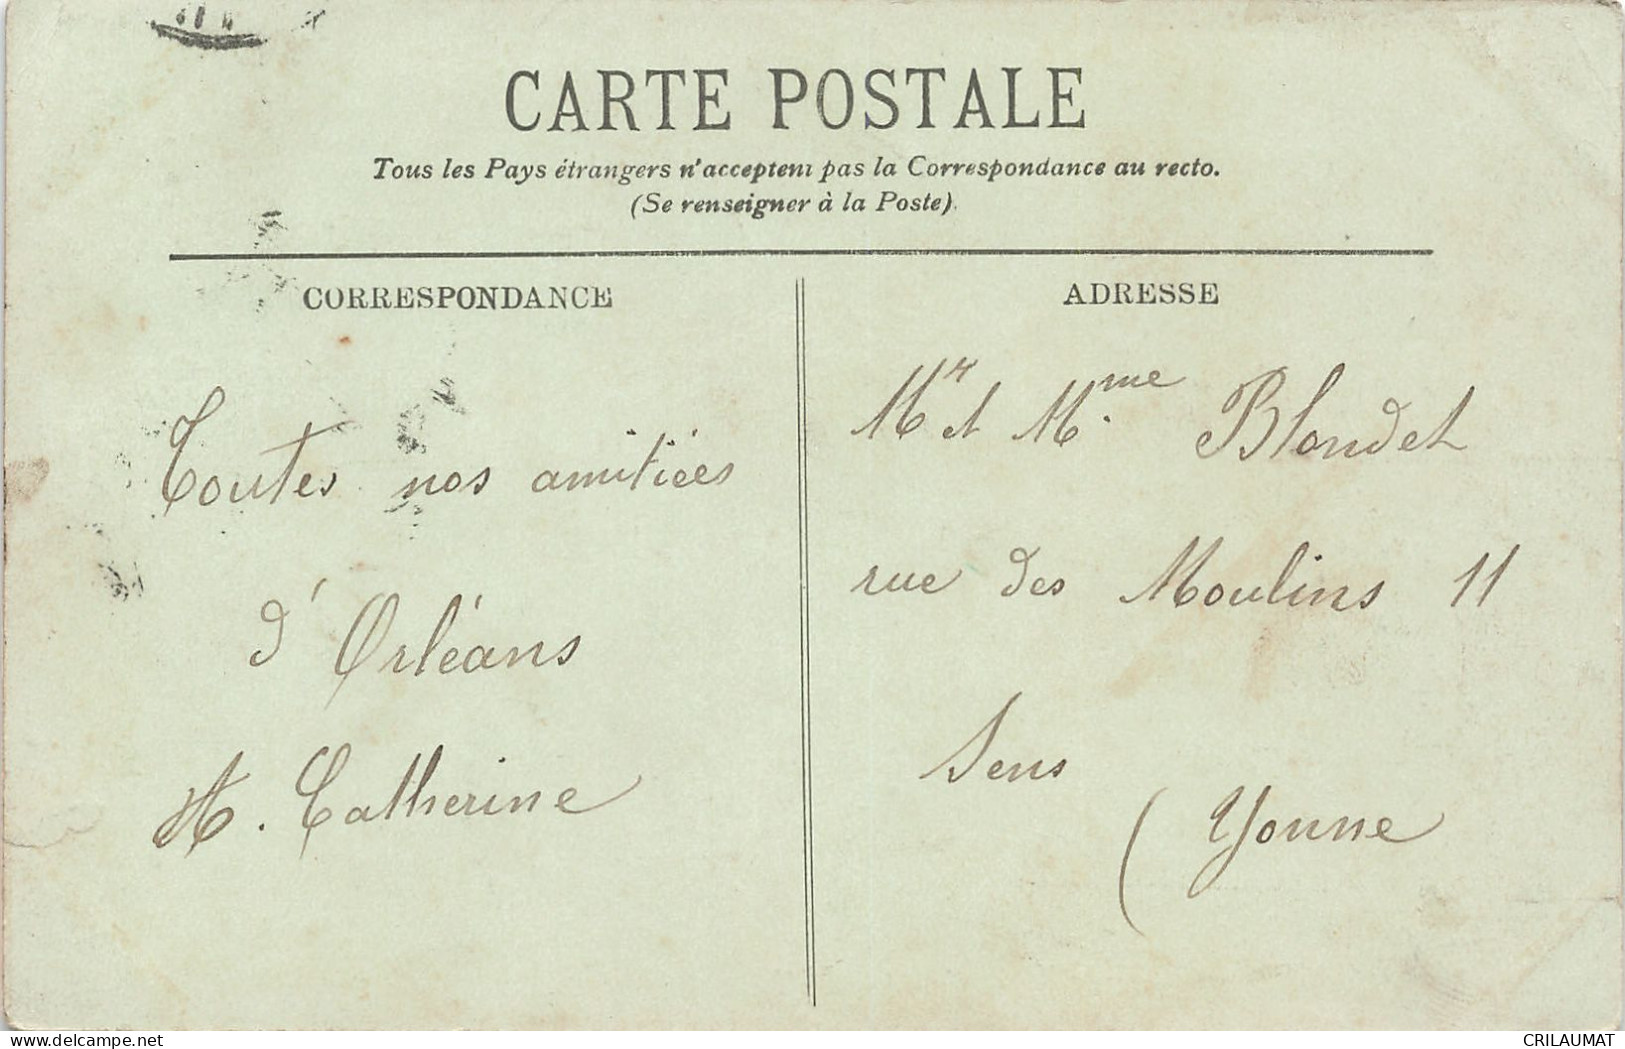 CARTE POSTALE
Tous les Pays étrangers n'acceptent pas la Correspondance au recto.
(Se renseigner à la Poste).
CORRESPONDANCE
Toutes nos amitiées
d'Orléans
H. Catherine
ADRESSE
Mr et Mme Blondet
rue des Moulins 11
Sens
(Yonne
delcampe.net
CRILAUMAT